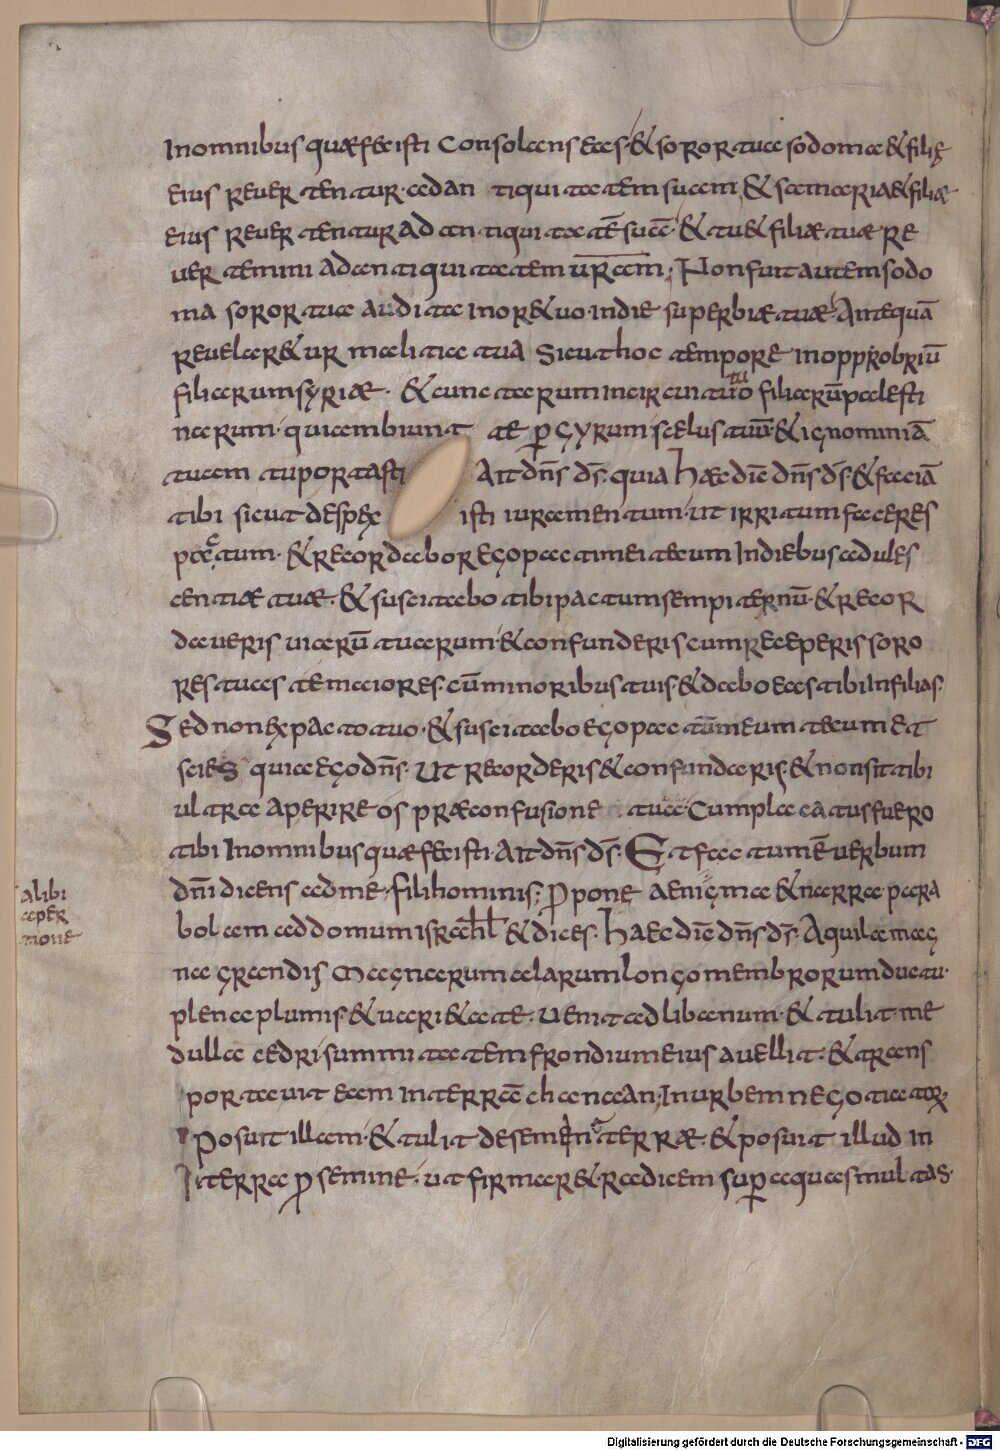 In omnibus quae fecisti consolans eas· & soror tua sodoma & filię
eius reuertentur· ad an tiquitatem suam, & samaria & filiae
eius reuertentur ad antiquitatē suā· & tu & filiae tuae re
uertemini ad antiquitatem ur̄am; Non fuit autem sodo
ma soror tua audita in ore tuo· in die superbiae tuae· Antequā
reuelaretur malitia tua Sicut hoc tempore in opprobriū
filiarum syriae· & cunctarum in circuitu tuo filiarū palesti
narum· qui ambiunt te p̄ gyrum· scelus tuū· & ignominiā
tuam tu portasti Ait dn̄s ds̄· quia haec dic̄ dn̄s ds̄· & faciā
tibi sicut despex isti iuramentum· ut irritum faceres
pactum· & recordabor ego pacti mei tecum In diebus adules
centiae tuae· & suscitabo tibi pactum sempiternū· & recor
daueris uiarū tuarum· & confunderis cum receperis soro
res tuas te maiores· cū minoribus tuis· & dabo eas tibi In filias·
Sed non ex pacto tuo· & suscitabo ego pactū meum tecum et
scies quia ego dn̄s· Ut recorderis & confundaris· & non sit tibi
ultra aperire os prae confusione tua· Cum placatus fuero
tibi In omnibus quae fecisti· Ait dn̄s ds̄· Et factum ē uerbum
dn̄i dicens ad me· fili hominis; P̄pone aenigma & narra para
bolam ad domum isrl̄ & dices· haec dic̄ dn̄s ds̄· Aquila mag
na grandis Magnarum alarum longo membrorum ductu·
plena plumis & uarietate· Uenit ad libanum· & tulit me
dulla cedri summitatem frondium eius auellit· & trans
portauit eam In terrā chanaan· In urbem negotiator̄
Posuit illam· & tulit de semente terrae· & posuit illud in
terra p̄ semine· ut firmaret radicem sup̄ aquas multas·
alibi
aper
tione
Digitalisierung gefördert durch die Deutsche Forschungsgemeinschaft - DFG